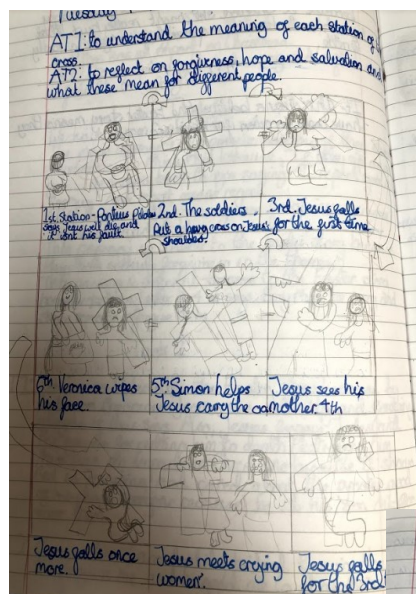 Tuesday
AT1: to understand the meaning of each station of
cross.
AT2: to reflect on forgiveness, hope and salvation and
what these mean for different people.
1st. Station - Pontius Pilate
says Jesus will die and
it isnt his fault.
2nd. The soldiers
Put a heavy cross on Jesus'
shoulders.
3rd. Jesus falls
for the first time
6th. Veronica wipes
his face.
5th Simon helps
Jesus carry the
Jesus sees his
mother. 4th
Jesus falls once
more.
Jesus meets crying
women.
Jesus falls
for the 3rd